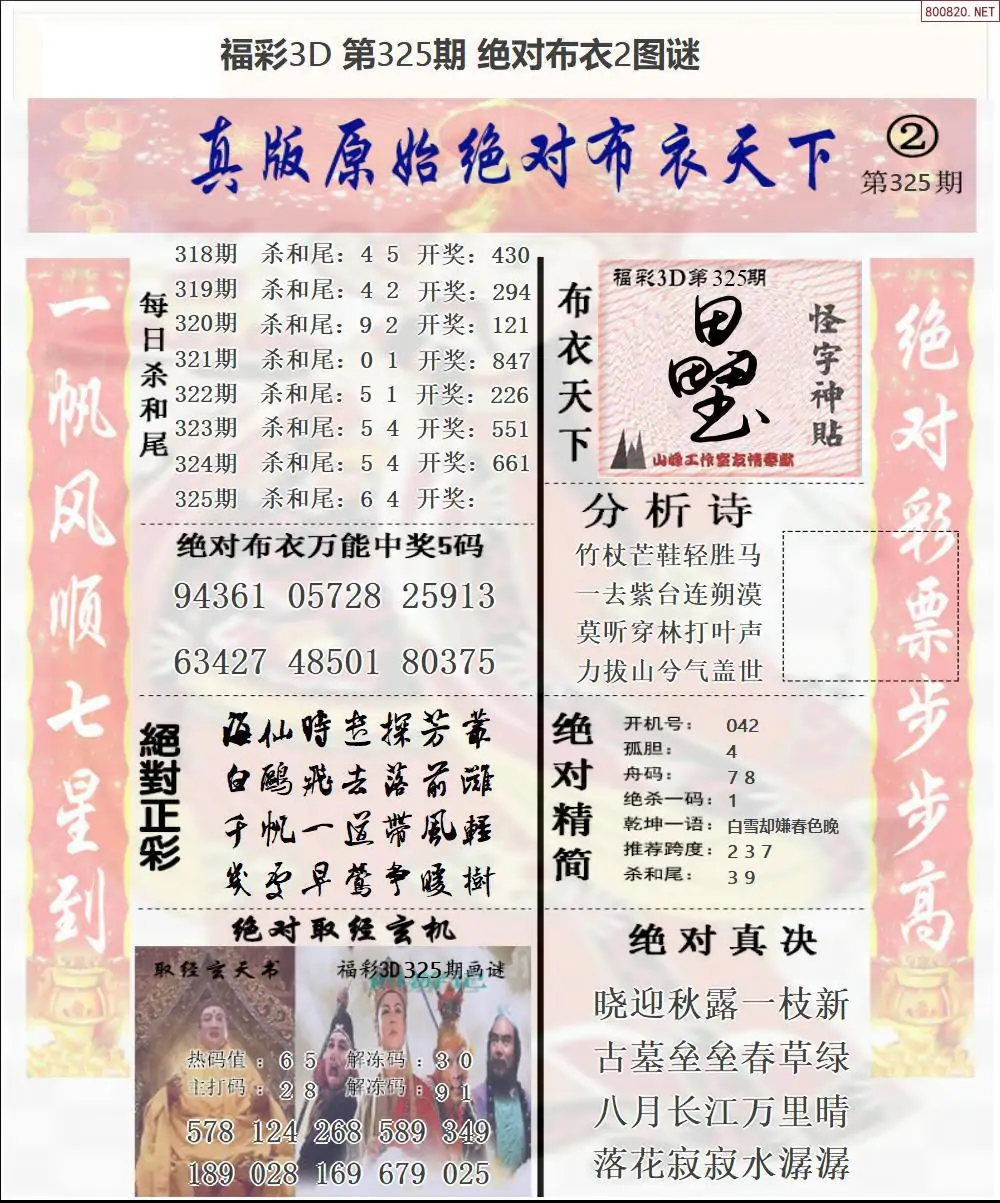 800820.NET
福彩3D 第325期 绝对布衣2图谜
真版原始绝对布衣天下
②
第325期
一帆风顺七星到
每日杀和尾
318期 杀和尾：4 5 开奖：430
319期 杀和尾：4 2 开奖：294
320期 杀和尾：9 2 开奖：121
321期 杀和尾：0 1 开奖：847
322期 杀和尾：5 1 开奖：226
323期 杀和尾：5 4 开奖：551
324期 杀和尾：5 4 开奖：661
325期 杀和尾：6 4 开奖：
绝对布衣万能中奖5码
94361 05728 25913
63427 48501 80375
絕對正彩
海仙時遊探芳叢
白鷗飛去落前灘
千帆一道帶風輕
幾處早鶯爭暖樹
绝对取经玄机
取经玄天书
福彩3D325期画谜
热码值：6 5 解冻码：3 0
主打码：2 8 解冻码：9 1
578 124 268 589 349
189 028 169 679 025
布衣天下
福彩3D第325期
怪字神貼
山峰工作室友情奉献
分析诗
竹杖芒鞋轻胜马
一去紫台连朔漠
莫听穿林打叶声
力拔山兮气盖世
绝对精简
开机号：042
孤胆：4
舟码：7 8
绝杀一码：1
乾坤一语：白雪却嫌春色晚
推荐跨度：2 3 7
杀和尾：3 9
绝对真决
晓迎秋露一枝新
古墓垒垒春草绿
八月长江万里晴
落花寂寂水潺潺
绝对彩票步步高